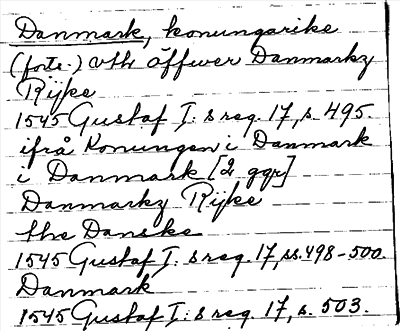 Danmark, konungarike
(forts.) uth öffwer Danmarkz
Rijke
1545 Gustaf I:s reg. 17, s. 495.
ifrå Konungen i Danmark
i Danmark [2 ggr]
Danmarkz Rijke
the Danske
1545 Gustaf I:s reg. 17, ss. 498-500.
Danmark
1545 Gustaf I:s reg. 17, s. 503.